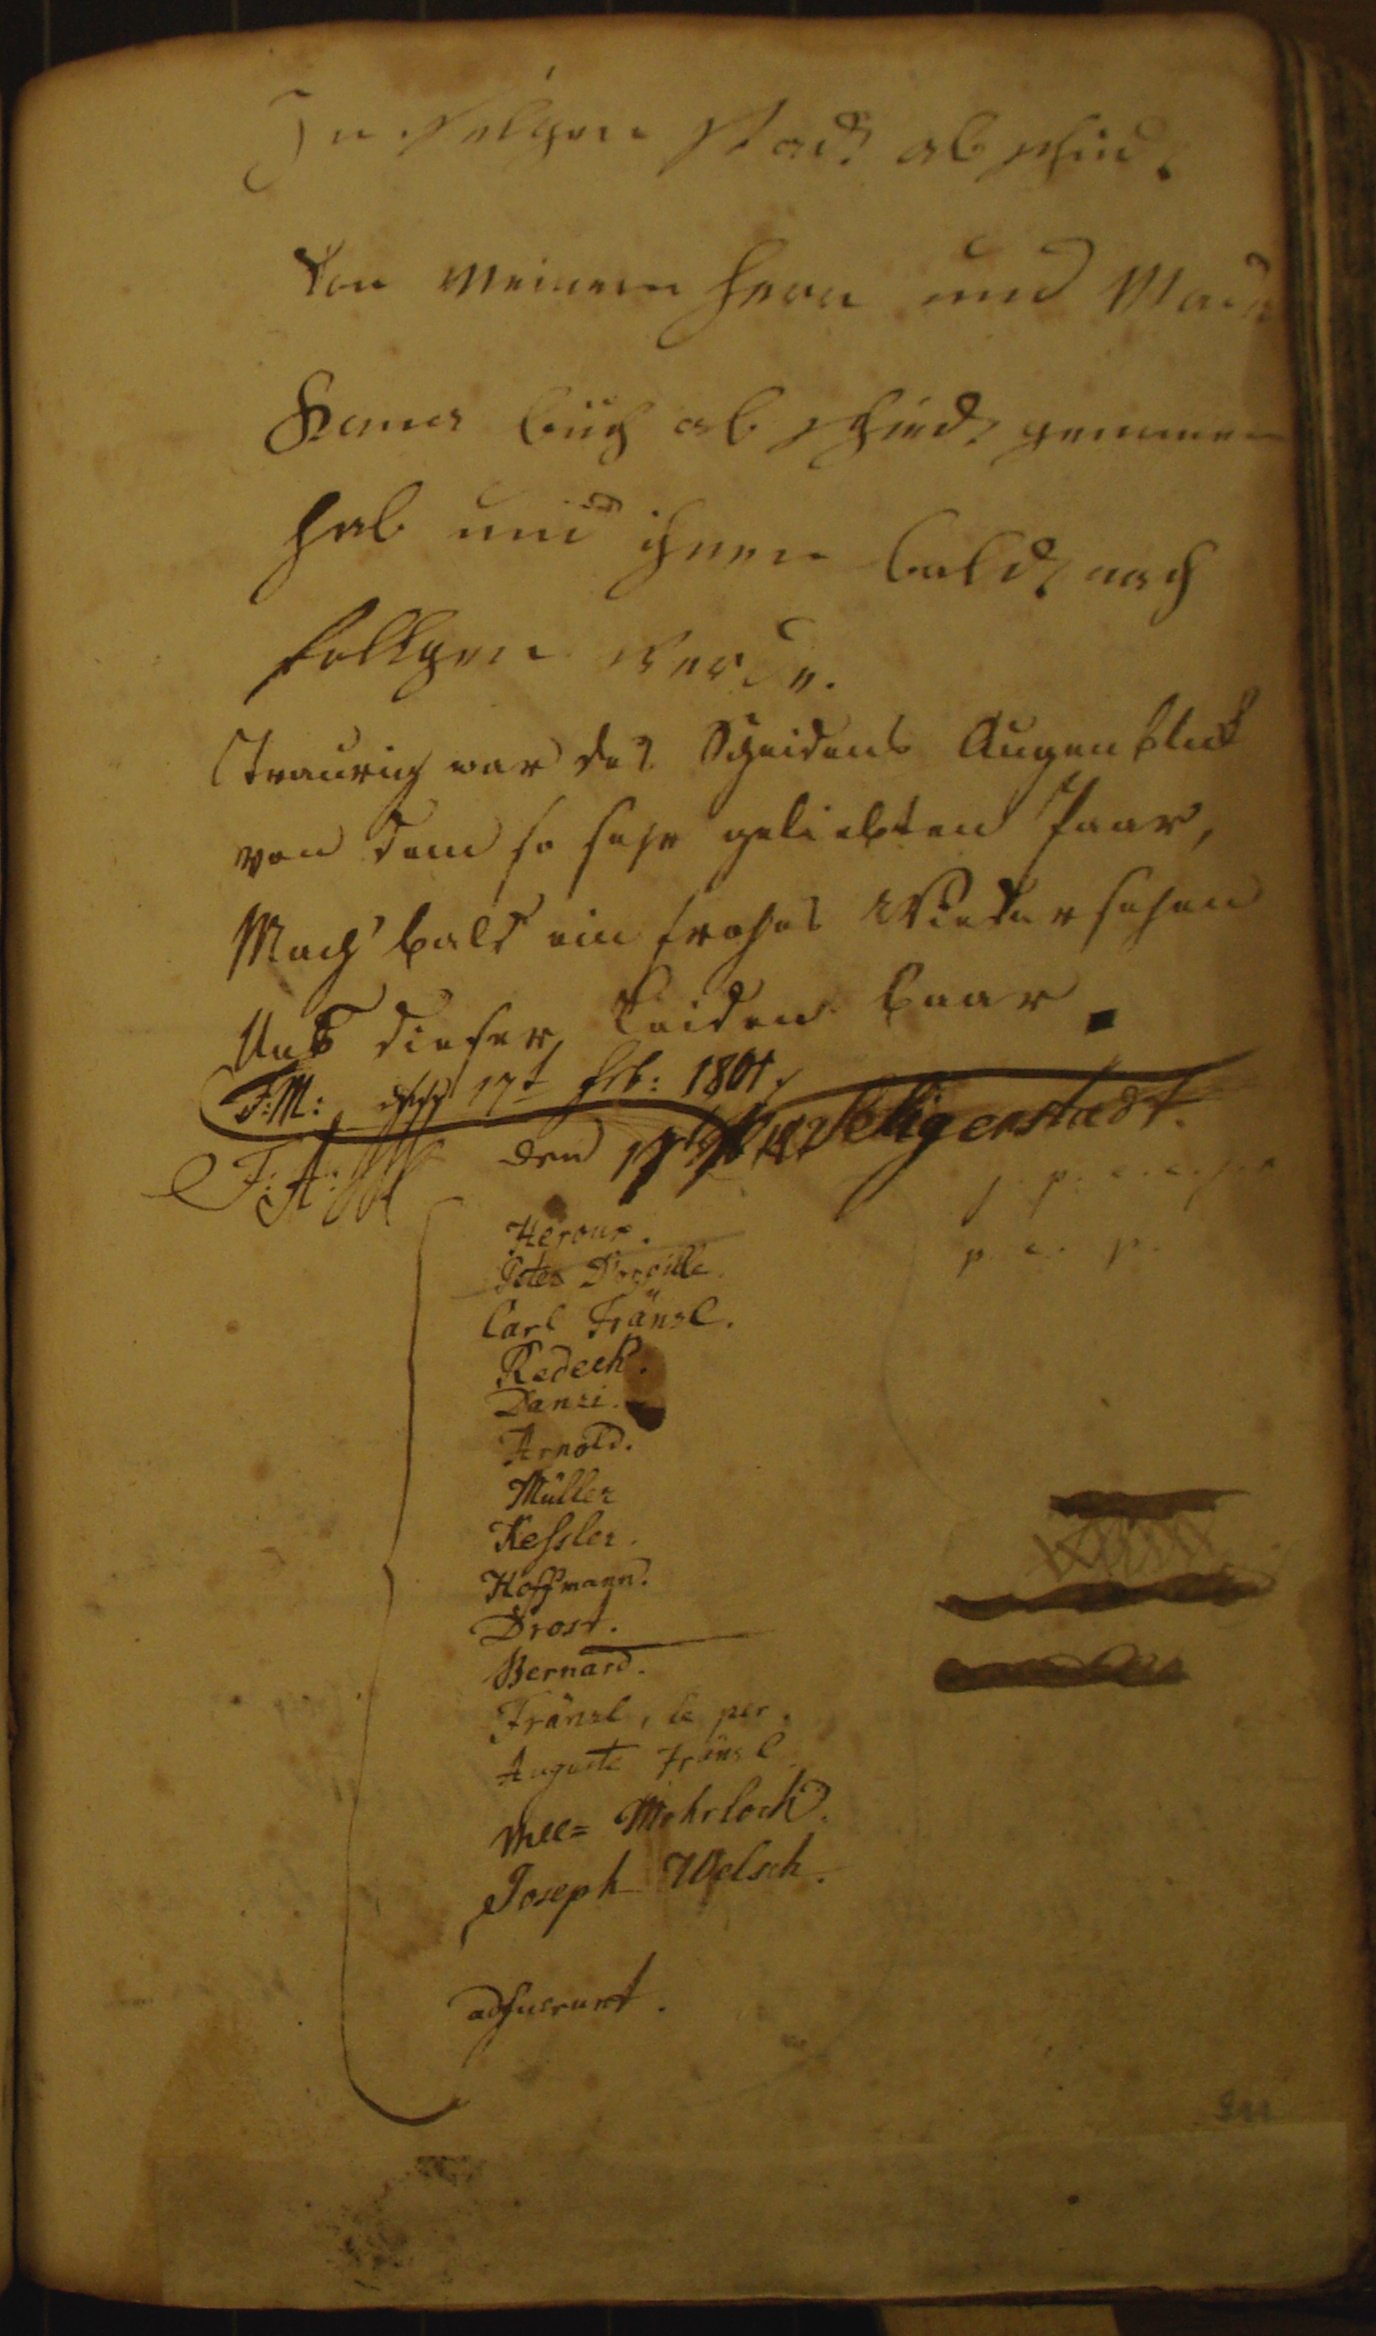 In selgen stadt abschid.
Von meinem Herrn und Mada
Bernar buch ab schiedt genommen
hab und ihnen baldt nach
follgen werde.
Traurig war des Scheidens Augenblick
von dem so sehr geliebten Paar,
Mach' bald ein frohes Wiedersehen
Uns dieser Leiden baar.
F: M: 17t Feb: 1801
F: A: den 17 Seligenstadt.
Heroux.
Peter Dorville.
Carl Fränzl.
Radeck.
Danzi.
Arnold.
Müller
Kessler.
Hoffmann.
Drost.
Bernard.
Fränzl, le per.
Auguste Fränzl
Mohrlock.
Joseph Welsch.
adfuerunt.